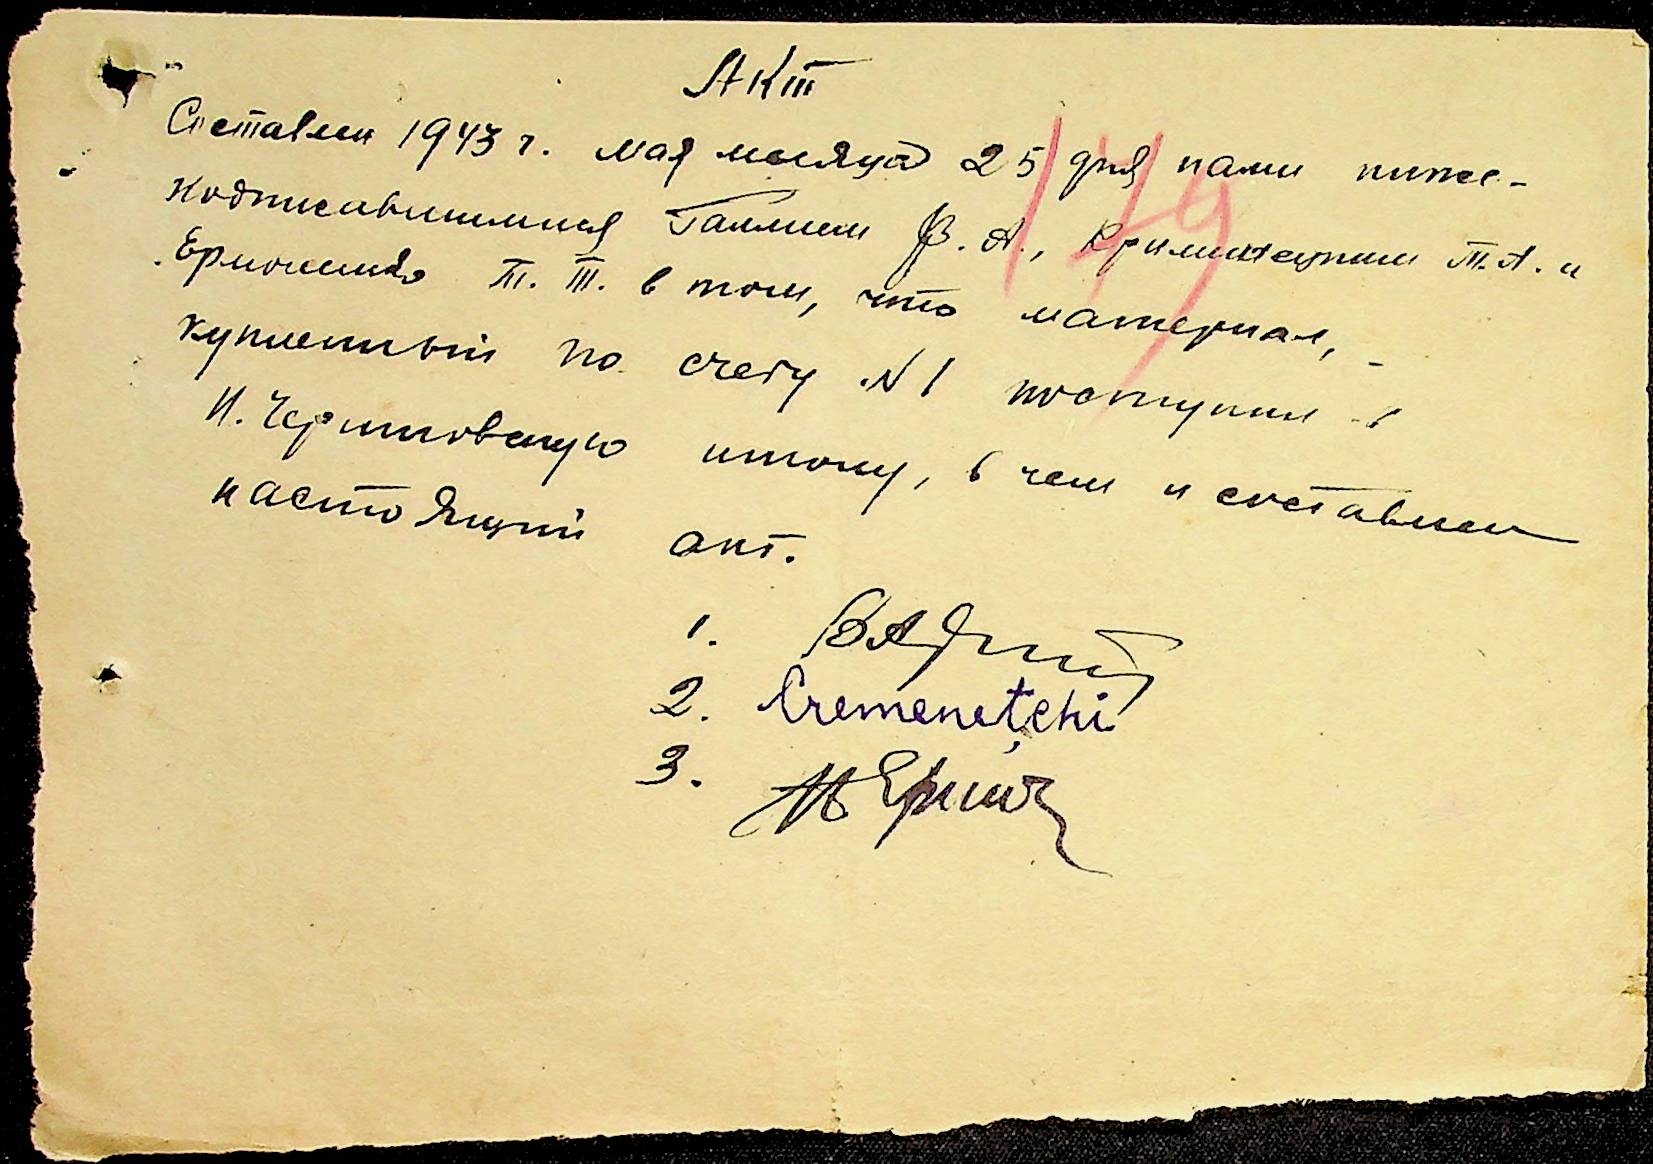 АКТ
Составлен 1943 г. мая месяца 25 дня нами ниже-
подписавшимися Галлием В. А., Кременецким Т. А. и
Ермоленко Т. Т. в том, что материал,
купленный по счету N 1 поступил в
Н. Чертковскую школу, в чем и составлен
настоящий акт.
1.
2. Cremenețchi
3.
179